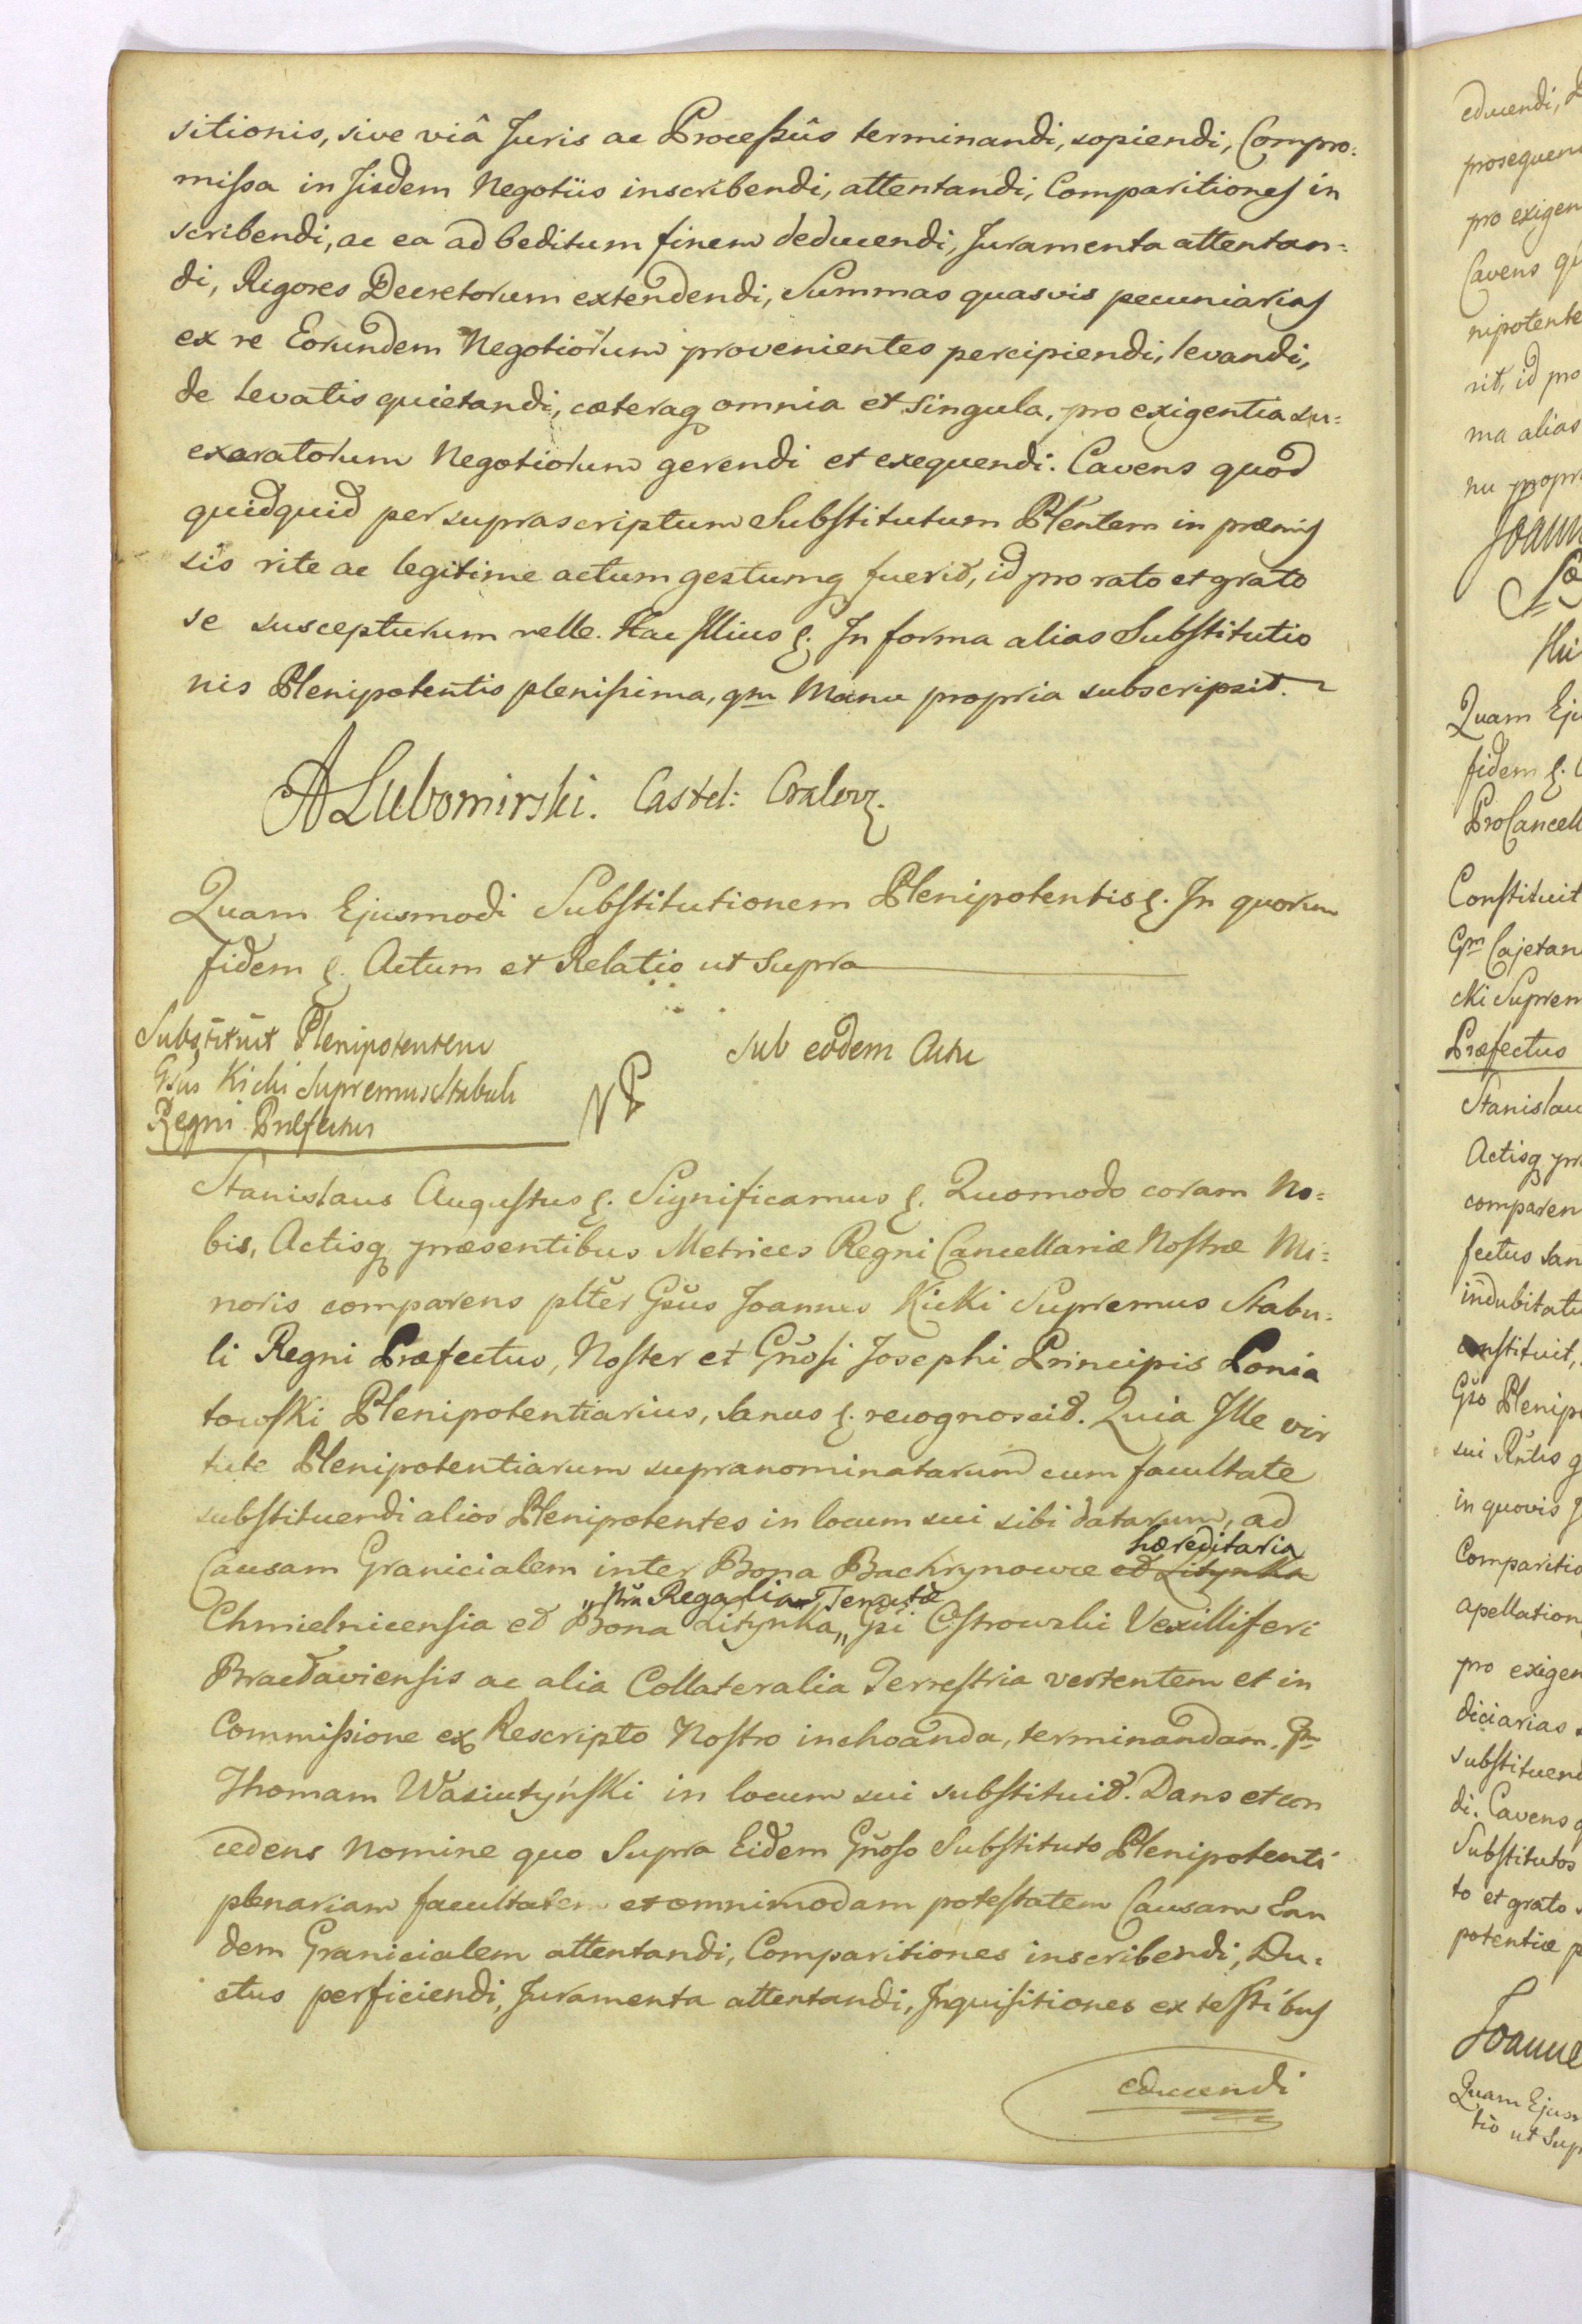 sitionis, sive viâ Juris ac Processûs terminandi, sopiendi, Compro=
missa in Jisdem Negotiis inscribendi, attentandi, Comparitiones in
scribendi, ac ea ad beditum finem deducendi, Juramenta attentan=
di, Rigores Decretorum extendendi, Summas quasvis pecuniarias
ex re Eorundem Negotiorum provenientes percipiendi, levandi,
de levatis quietandi, cæteraq omnia et singula, pro exigentia su=
exaratorum Negotiorum gerendi et exequendi. Cavens quod
quidquid per suprascriptum Substitutum Plentem in præmis
sis rite ac legitime actum gestumq fuerit, id pro rato et grato
se suscepturum velle. Hac Illius &. In forma alias Substitutio
nis Plenipotentis plenissima, qm Manu propria subscripsit.
A Lubomirski. Castel: Cralovz.
Quam Ejusmodi Substitutionem Plenipotentis &. In quorum
fidem &. Actum et Relatio ut supra
Substituit Plenipotentem
Gsus Kicki Supremus Stabuli
Regni Præfectus
NP
sub eodem Actu
Stanislaus Augustus &. Significamus &. Quomodo coram No=
bis, Actisq præsentibus Metrices Regni Cancellariæ Nostræ Mi=
noris comparens plter Gsus Joannes Kicki Supremus Stabu=
li Regni Præfectus, Noster et Gnosi Josephi Principis Ponia
towski Plenipotentiarius, Sanus &. recognoscit. Quia Ille vir
tute Plenipotentiarum supranominatarum cum facultate
substituendi alios Plenipotentes in locum sui sibi datarum, ad
hæreditaria
Causam Granicialem inter Bona Bachrynowce et Litynka
Regalia Tenutæ
Chmielnicensia et Bona Litynka „ Gsi Ostrowski Vexilliferi
Bracdaviensis ac alia Collateralia Terrestria vertentem et in
Commissione ex Rescripto Nostro inchoanda, terminandam. Gm
Thomam Wasiutyński in locum sui substituit. Dans et con
cedens Nomine quo Supra Eidem Gnoso Substituto Plenipotenti
plenariam facultatem et omnimodam potestatem Causam Ean
dem Granicialem attentandi, Comparitiones inscribendi, Du=
ctus perficiendi, Juramenta attentandi, Inquisitiones ex testibus
educendi
educendi,
prosequen
pro exigen
Cavens
nipotente
rit, id pro
ma alias
nu propr
Joann
Quam Eju
fidem &.
ProCancell
Constituit
Gm Cajetan
cki Suprem
Præfectus
Stanislau
Actisq
comparen
fectus San
indubitatu
constituit,
Gso Plenip
sui
in quovis
Comparitio
apellation
pro exigen
diciarias
substituend
di. Cavens
Substitutos
to et grato
potentiæ
Joanne
Quam Ejus
tio ut Sup